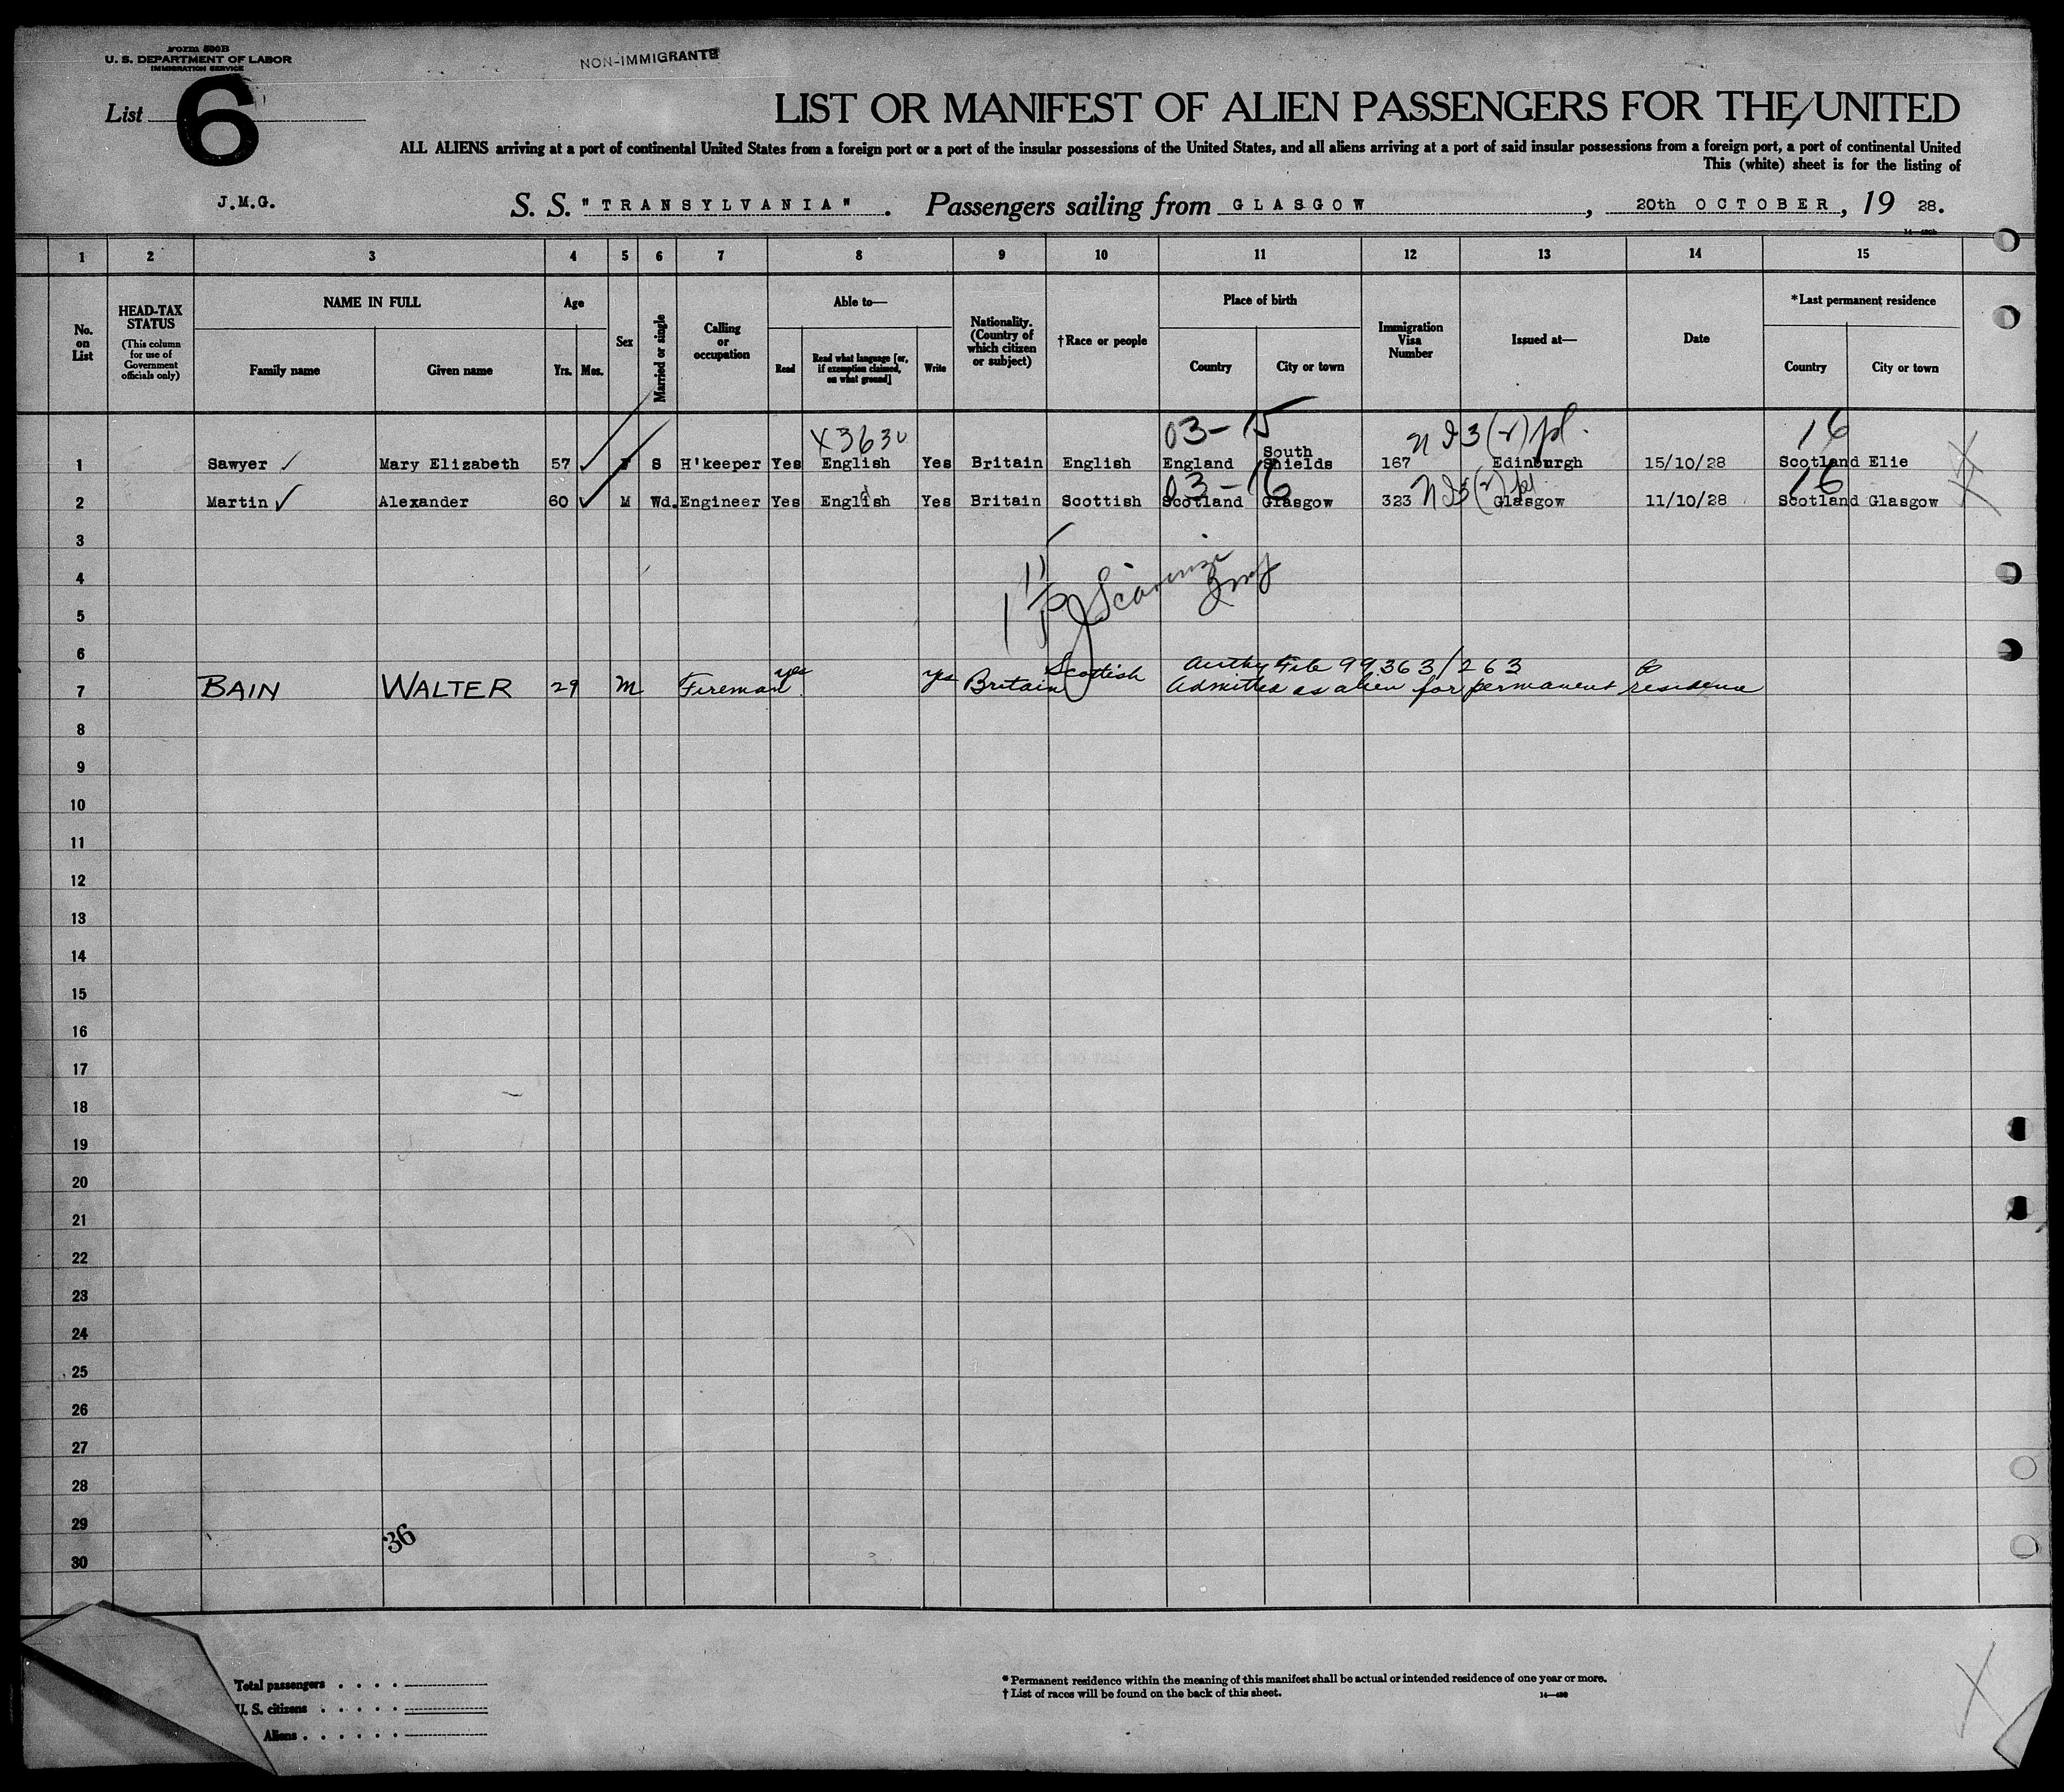 Form 500B
U. S. DEPARTMENT OF LABOR
IMMIGRATION SERVICE
NON-IMMIGRANTS
List 6
LIST OR MANIFEST OF ALIEN PASSENGERS FOR THE UNITED
ALL ALIENS arriving at a port of continental United States from a foreign port or a port of the insular possessions of the United States, and all aliens arriving at a port of said insular possessions from a foreign port, a port of continental United
This (white) sheet is for the listing of
J.M.G.
S. S. "TRANSYLVANIA". Passengers sailing from GLASGOW, 20th OCTOBER, 19 28.
1 2 3 4 5 6 7 8 9 10 11 12 13 14 15
No. on List
HEAD-TAX STATUS (This column for use of Government officials only)
NAME IN FULL
Family name Given name
Age
Yrs. Mos.
Sex
Married or single
Calling or occupation
Able to—
Read
Read what language [or, if exemption claimed, on what ground]
Write
Nationality. (Country of which citizen or subject)
†Race or people
Place of birth
Country City or town
Immigration Visa Number
Issued at—
Date
*Last permanent residence
Country City or town
X3630 03-15 16
1 Sawyer Mary Elizabeth 57 F S H'keeper Yes English Yes Britain English England South Shields 167 Edinburgh 15/10/28 Scotland Elie
03-16 16
2 Martin Alexander 60 M Wd. Engineer Yes English Yes Britain Scottish Scotland Glasgow 323 Glasgow 11/10/28 Scotland Glasgow
3
4
5
6
File 99363/263
7 BAIN WALTER 29 M Fireman yes yes Britain Scottish Admitted as alien for permanent residence
8
9
10
11
12
13
14
15
16
17
18
19
20
21
22
23
24
25
26
27
28
29
36
30
Total passengers . . . .
U. S. citizens . . . . .
Aliens . . . . . .
* Permanent residence within the meaning of this manifest shall be actual or intended residence of one year or more.
† List of races will be found on the back of this sheet.